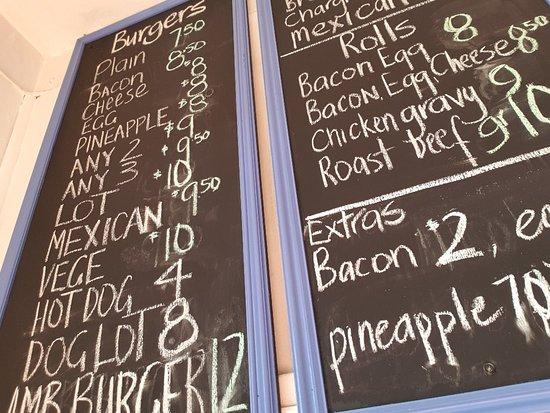 Burgers
Plain 7.50
Bacon 8.50
Cheese 8
EGG 8
PINEAPPLE $8
ANY 2 $9
ANY 3 9.50
LOT $10
MEXICAN $9.50
VEGE $10
HOT DOG 4
DOG LOT 8
BURGER 12
mexican
Rolls
Bacon Egg 8
Bacon, Egg, Cheese 8.50
Chicken gravy 9
Roast beef 9 10
Extras
Bacon $2,
pineapple 70